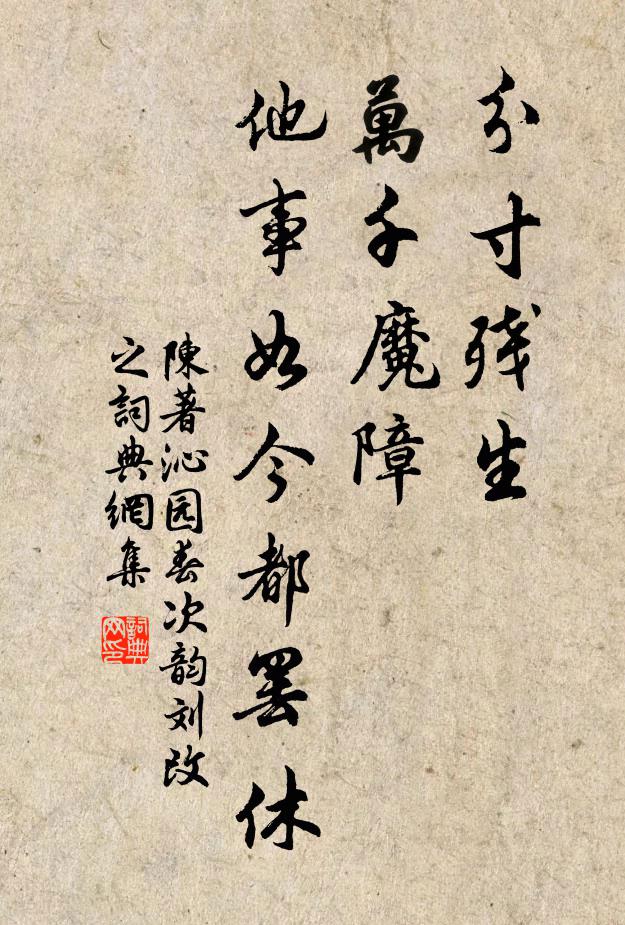 分寸残生
萬千魔障
他事如今都罢休
陳著沁园春次韵刘改
之詞典網集
詞典
网印